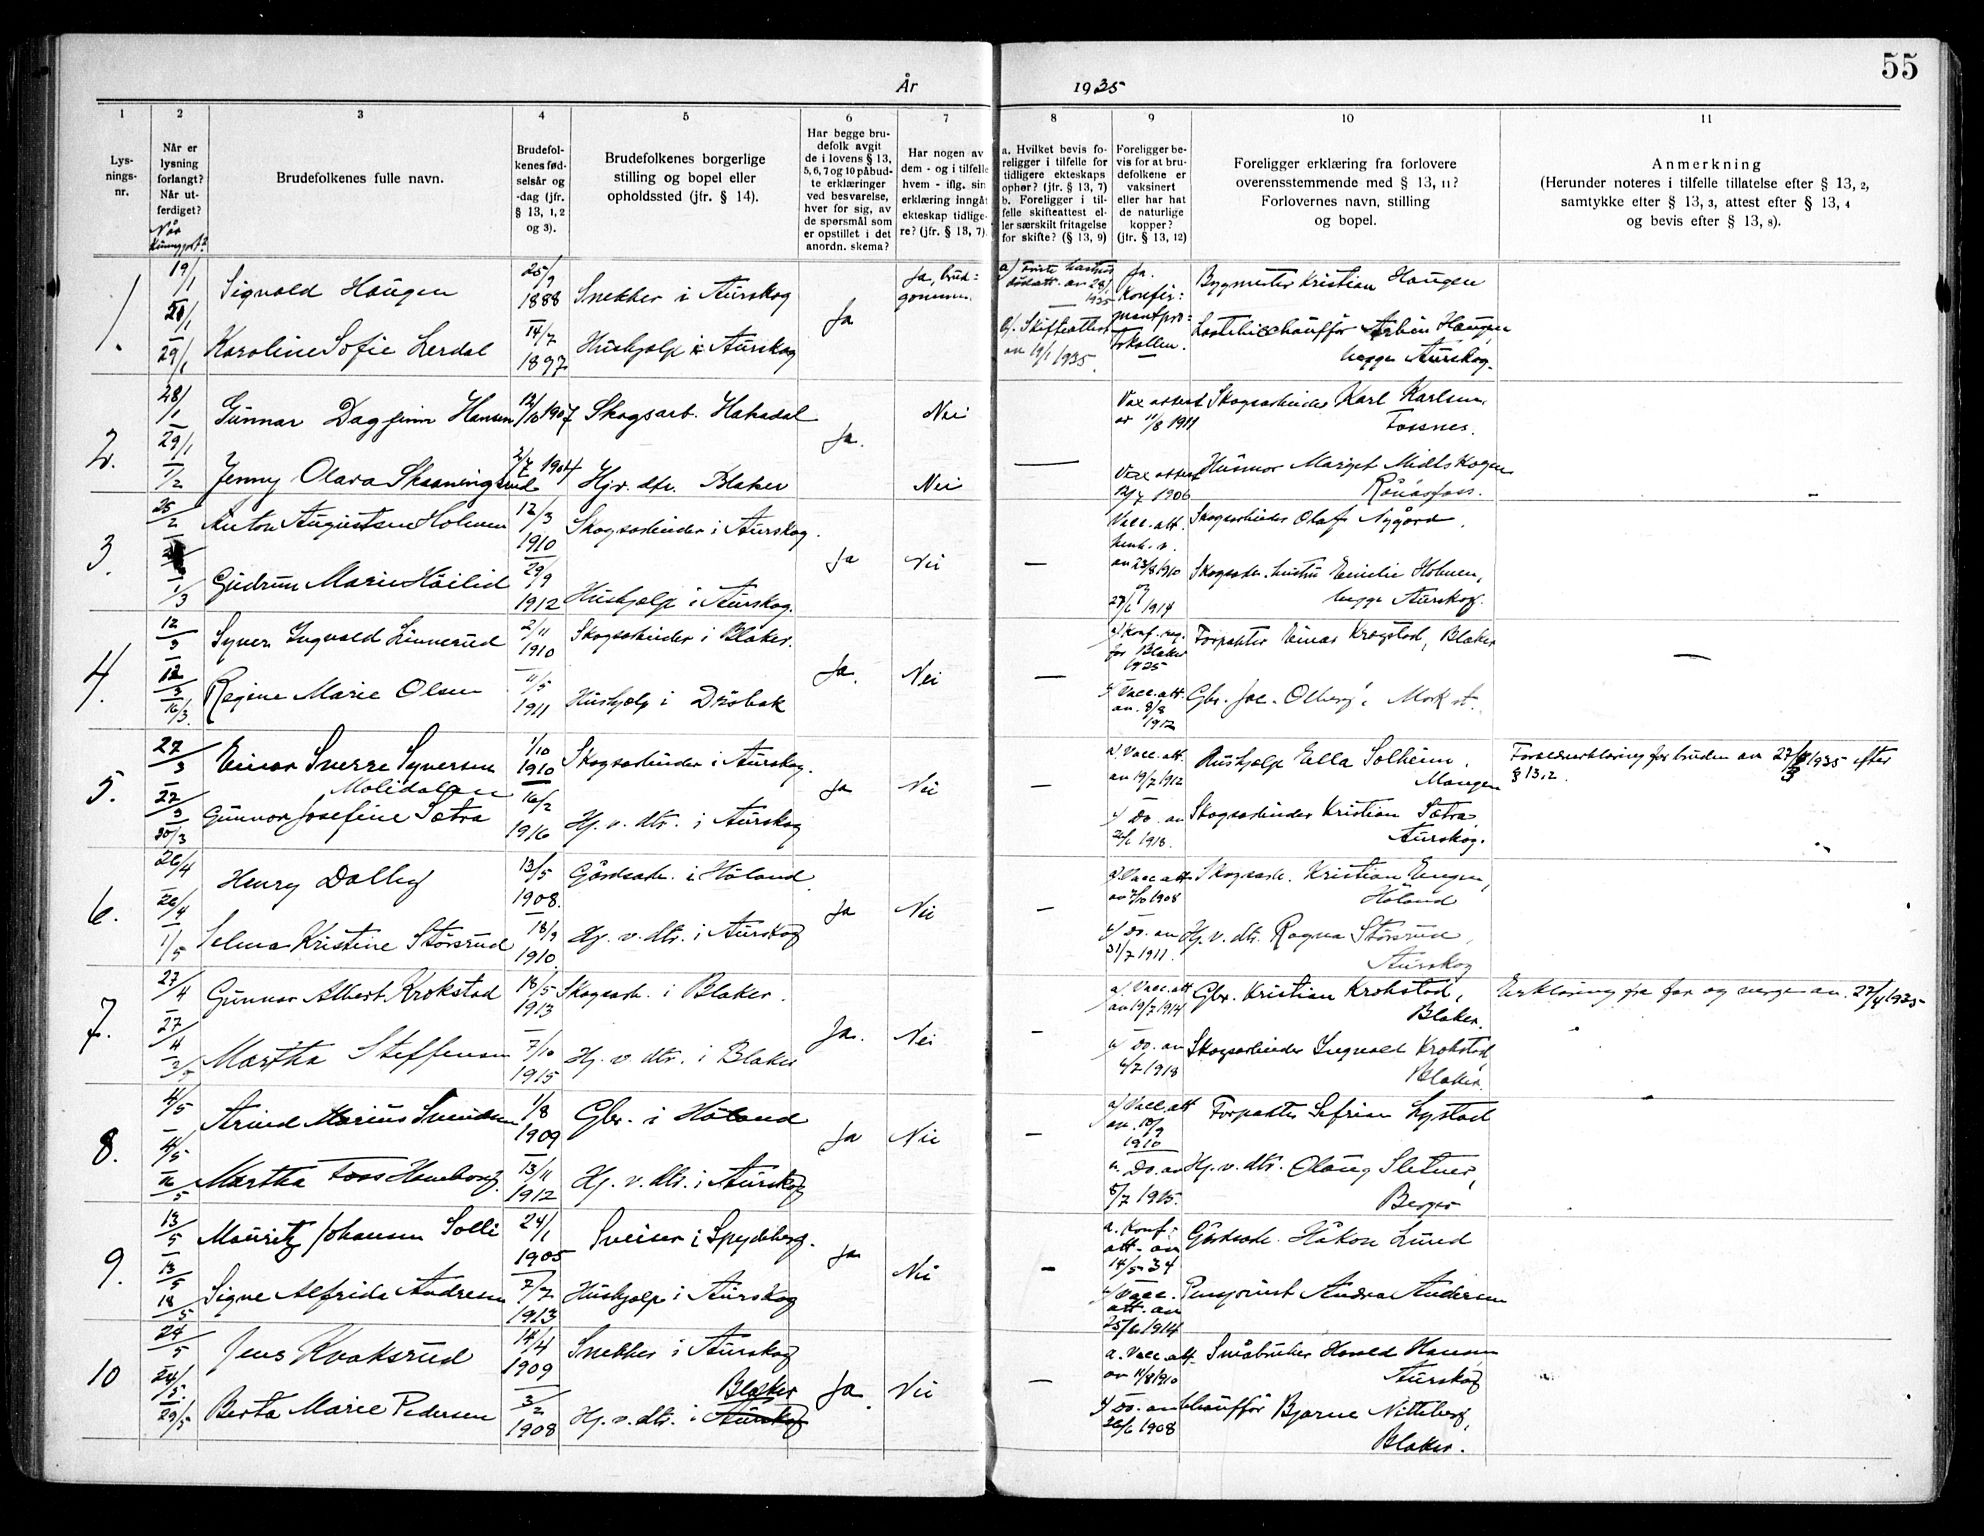 55
År 1935
1 2 3 4 5 6 7 8 9 10 11
Lys-
nings-
nr.
Når er
lysning
forlangt?
Når ut-
ferdiget?
Når
kunngjort?
Brudefolkenes fulle navn.
Brudefol-
kenes fød-
selsår og
-dag (jfr.
§ 13, 1, 2
og 3).
Brudefolkenes borgerlige
stilling og bopel eller
opholdssted (jfr. § 14).
Har begge bru-
defolk avgit
de i lovens § 13,
5, 6, 7 og 10 påbud-
te erklæringer
ved besvarelse,
hver for sig, av
de spørsmål som
er opstillet i det
anordn. skema?
Har nogen av
dem - og i tilfelle
hvem - iflg. sin
erklæring inngåt
ekteskap tidlige-
re? (jfr. § 13, 7).
a. Hvilket bevis fo-
religger i tilfelle for
tidligere ekteskaps
ophør? (jfr. § 13, 7)
b. Foreligger i til-
felle skifteattest el-
ler særskilt fritagelse
for skifte? (§ 13, 9)
Foreligger be-
vis for at bru-
defolkene er
vaksinert
eller har hat
de naturlige
kopper?
(jfr. § 13, 12)
Foreligger erklæring fra forlovere
overensstemmende med § 13, 11?
Forlovernes navn, stilling
og bopel.
Anmerkning
(Herunder noteres i tilfelle tillatelse efter § 13, 2,
samtykke efter § 13, 3, attest efter § 13, 4
og bevis efter § 13, 8).
1. 19/1 Sigvald Haugen 25/9 1888 Snekker i Aurskog Ja Ja, brud-
gommen. Ja. Byggmester Kristian Haugen
29/1 Karoline Sofie Lerdal 14/7 1897 Hushjelp i Aurskog b/. Skifteattest
av 19/1 1935. Konfir-
mantpro-
tokollen. Lastebilchauffør Haugen,
begge Aurskog.
2. 28/1 Gunnar Dagfinn Hansen 12/10 1907 Skogsarb. Hakadal Ja. Nei Vax attest
av 11/8 1911 Skogsarbeider Karl Karlsen,
Fossnes.
29/1
1/2 Jenny Olava Skaaningsrud 2/7 1904 Hjv. dtr. Blaker Nei — Vax attest
12/7 1906 Husmor Margit Midtskogen
Rånåsfoss.
3. 25/2 Anton Augustsen Holmen 12/3 1910 Skogsarbeider i Aurskog. Ja Nei — Vacc. att.
av 23/8 1910 Skogsarbeider Olaf Nygård.
1/3 Gudrun Marie Høilid 29/9 1912 Hushjelp i Aurskog. og
27/6 1914 Skogsarb. hustru Emilie Holmen,
begge Aurskog.
4. 12/3 Syver Ingvald Linnerud 2/11 1910 Skogsarbeider i Blaker. Ja. Nei — a) Konf. reg.
for Blaker
1925 Forpakter Einar Krogstad, Blaker —
12/3
16/3 Regine Marie Olsen 11/5 1911 Hushjelp i Drøbak Vacc. att.
av. 8/8
1912 Gbr. Jac. Olberg, Mork st.
5. 27/3 Einar Sverre Syversen
Molidalen 1/10 1910 Skogsarbeider i Aurskog. Ja Nei — a) Vacc. att.
av 19/7 1912 Hushjelp Ella Solheim,
Mangen Foreldreerklæring for bruden av 27/3 1935 efter
§ 13,2.
27/3
30/3 Gunnor Josefine Sætra 16/2 1916 Hj. v. dtr. i Aurskog Do. av
26/6 1918. Skogsarbeider Kristian Sætra,
Aurskog.
6. 26/4 Henry Dalby 13/5 1908. Gårdsarb. i Høland Ja Nei — Vacc. att
av 7/10 1908 Skogsarb. Kristian Engen,
Høland
26/4
1/5 Selma Kristine Størsrud 18/9 1910. Hj. v. dtr. i Aurskog Do. av
31/7 1911. Hj. v. dtr. Ragna Størsrud,
Aurskog
7. 27/4 Gunnar Albert Krokstad 18/5 1913 Skogsarb. i Blaker. Ja. Nei — a) Vacc. att
av 19/7 1914 Gbr. Kristian Krokstad,
Blaker. Erklæring fra far og verge av. 27/4 1935
27/4
2/5 Martha Steffensen 7/10 1915 Hj. v. dtr. i Blaker Do. av
6/7 1918 Skogsarbeider Ingvald Krokstad,
Blaker.
8. 4/5 Arvid Marius Svendsen 1/8 1909 Gbr. i Høland Ja Nei — a) Vacc. att
av. 10/9
1910 Forpakter Sefrin Lystad
4/5
Martha Foss Hemborg. 13/11 1912 Hj. v. dtr. i Aurskog Do. av
8/7 1915. Hj. v. dtr. Olaug Sletner,
Berger
9. 13/5 Mauritz Johansen Solli 24/1 1905 Sveiser i Spydeberg. Ja Nei — a. Konf.
att. av
14/5 34 Gårdsarb. Håkon Lund
13/5
18/5 Signe Alfrida Andresen 7/7 1913 Hushjelp i Aurskog Vacc.
att. av
25/6 1914 Pensjonist Andrea Andersen
10 24/5 Jens Kvaksrud 14/4 1909 Snekker i Aurskog Ja. Nei — a. Vacc. att.
av 11/8 1910 Småbruker Harald Hansen
Aurskog
24/5.
29/5 Berta Marie Pedersen 3/2 1908 Hj. v. dtr. i Aurskog Blaker Do. av
26/6 1908 chauffør Bjarne Nitteberg,
Blaker.